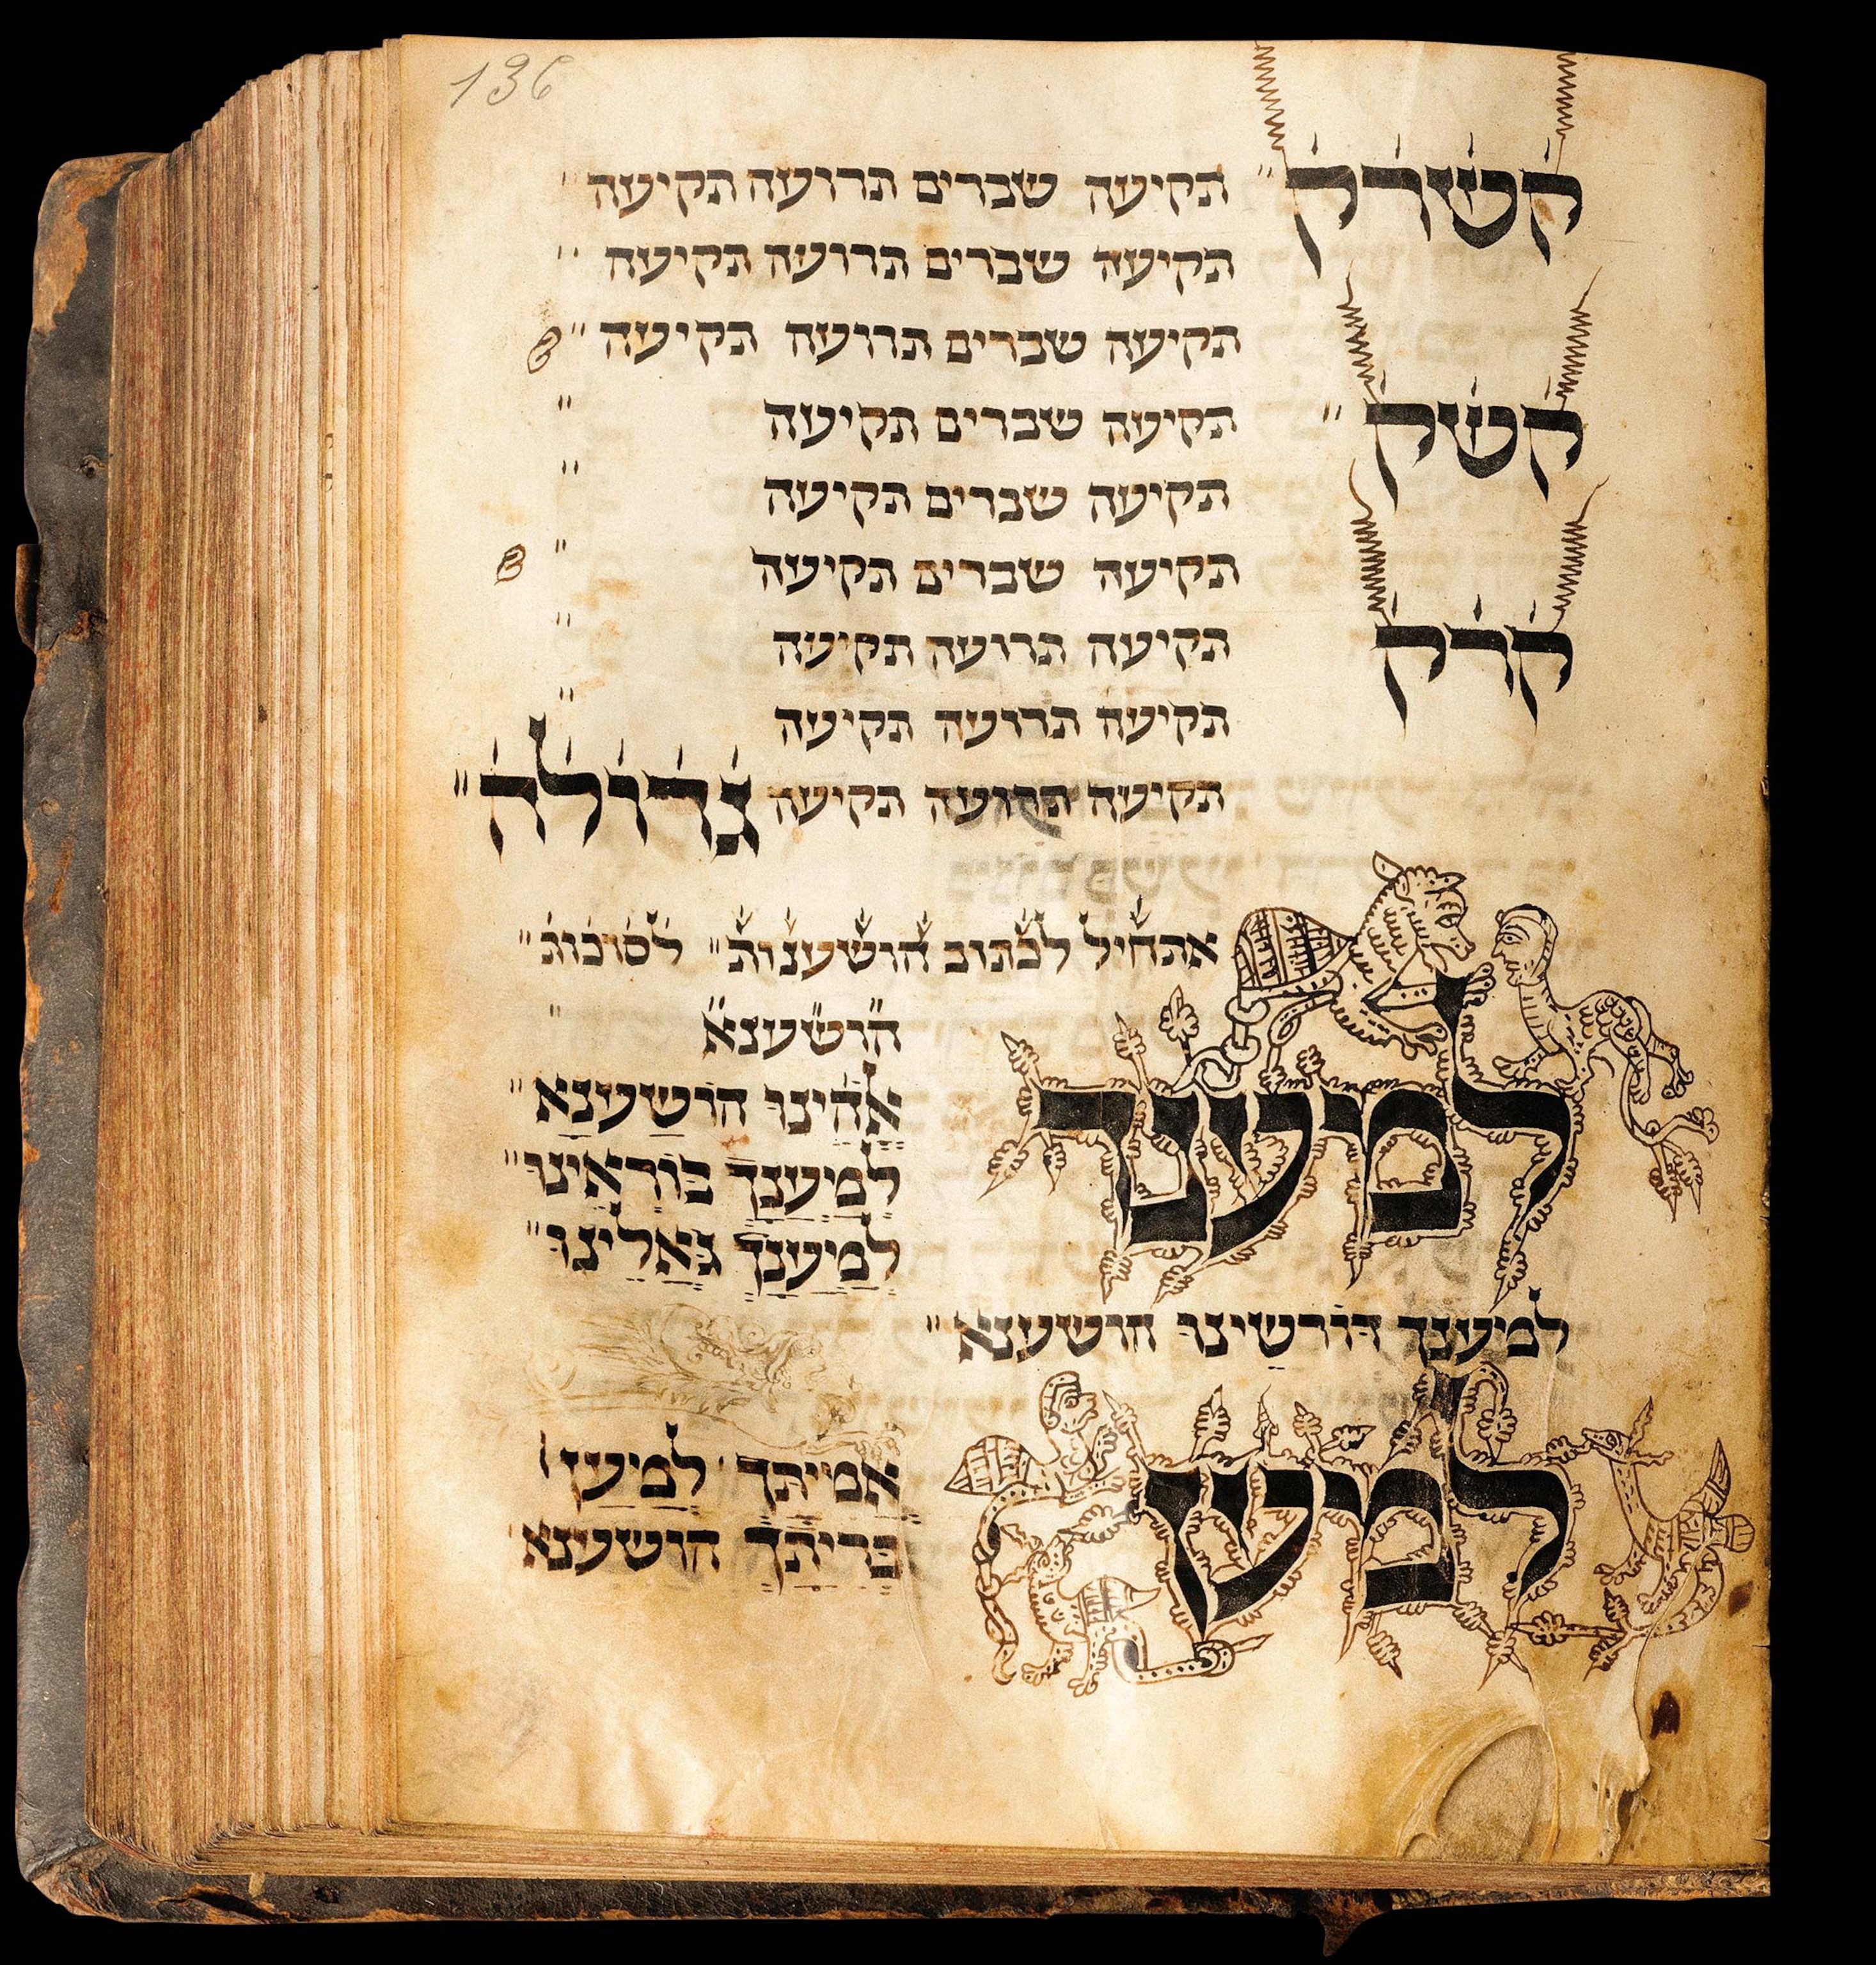 136
קשרק" תקיעה שברים תרועה תקיעה"
תקיעה שברים תרועה תקיעה"
תקיעה שברים תרועה תקיעה"
קשק" תקיעה שברים תקיעה"
תקיעה שברים תקיעה"
תקיעה שברים תקיעה"
קרק תקיעה תרועה תקיעה"
תקיעה תרועה תקיעה"
תקיעה תרועה תקיעה גדולה"
אתחיל לכתוב הושענות" לסוכות"
הושענא"
למענך אלהינו הושענא"
למענך בוראינו"
למענך גאלינו"
למענך דורשינו הושענא"
למען אמיתך למען
בריתך הושענא